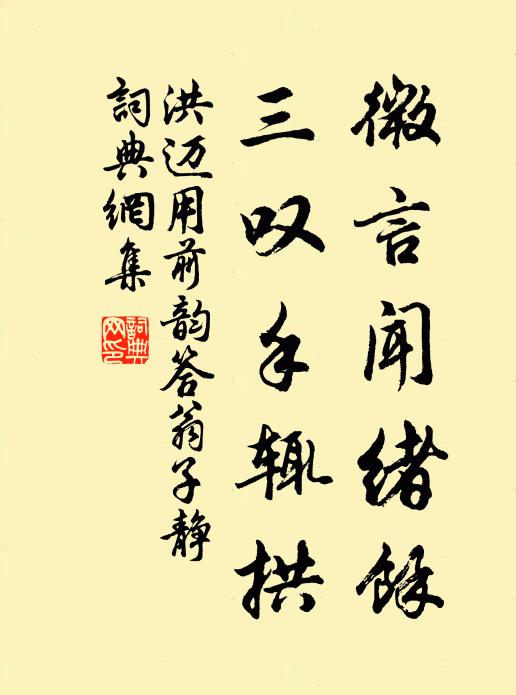 微言闻绪馀
三叹手辄拱
洪迈用前韵答翁子静
詞典網集
詞典网印